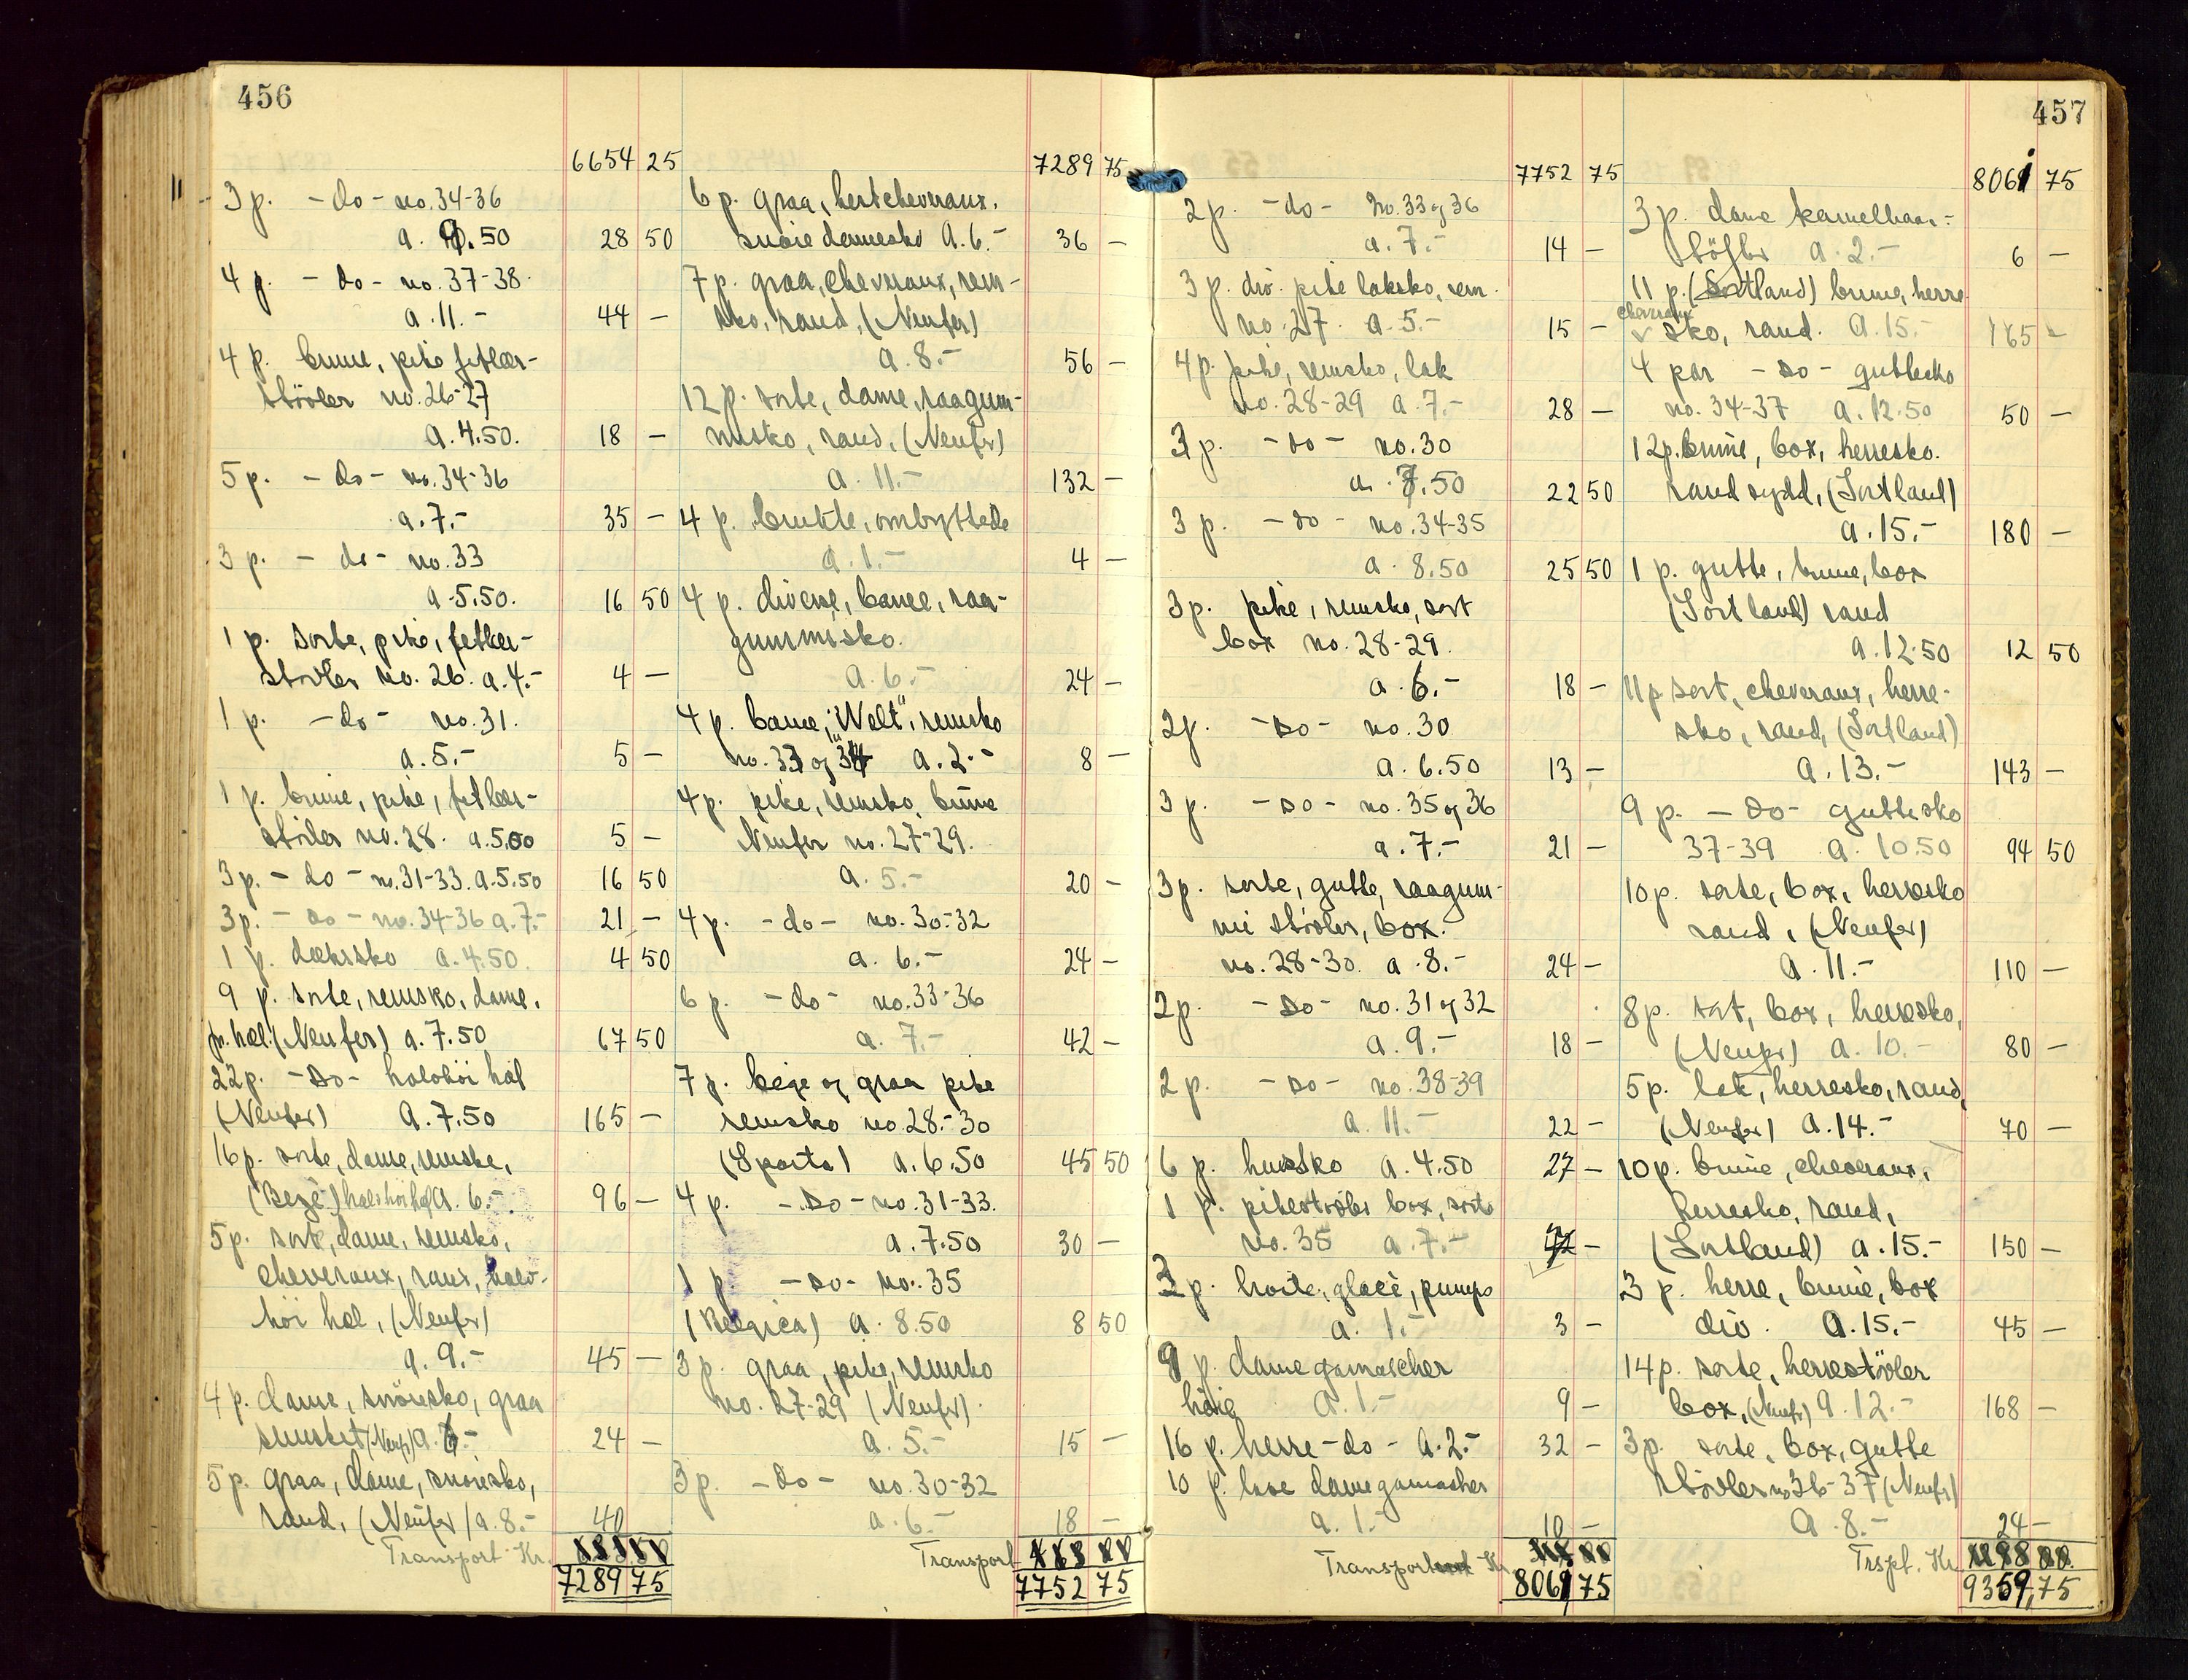 456
6654 25
3 p. - do - no. 34-36
a. 9.50 28 50
4 p. - do - no. 37-38.
a. 11.- 44 -
4 p. brune, pike fetlær-
støvler no. 26-27
a. 4.50. 18 -
5 p. - do - no. 34-36
a. 7.- 35 -
3 p. - do - no. 33
a 5.50. 16 50
1 p. sorte, pike, fetlær-
støvler no. 26. a. 4.- 4 -
1 p. - do - no. 31.
a. 5.- 5 -
1 p. brune, pike, fetlær-
støvler no. 28. a. 5,00 5 -
3 p. - do - no. 31-33. a. 5.50 16 50
3 p. - do - no. 34-36 a. 7.- 21 -
1 p. dækssko a. 4.50. 4 50
9 p. sorte, remsko, dame,
hæl (Neufer) a. 7.50 67 50
22 p. - do - halvhöi hæl
(Neufer) a. 7.50 165 -
16 p. sorte, dame, remsko,
(Beze) halvhöi hæl a. 6.- 96 -
5 p. sort, dame, remsko,
cheveraux, rand, halv-
höi hæl, (Neufer)
a. 9.- 45 -
4 p. dame, snöresko, graa
semsket (Neuf) a. 6.- 24 -
5 p. graa, dame, snöresko,
rand, (Neufer) a. 8.- 40
Transport Kr.
7289 75
7289 75
6 p. graa, hestcheveraux.
snöre damesko a. 6.- 36 -
7 p. graa, cheveraux, rem-
sko, rand, (Neufer)
a. 8.- 56 -
12 p. sorte, dame, raagum-
misko, rand, (Neufer)
a. 11.- 132 -
4 p. brukte, ombyttede
a. 1.- 4 -
4 p. diverse, barne, raa-
gummisko.
a. 6.- 24 -
4 p. barne, "Welt", remsko
no. 33 og 34 a. 2.- 8 -
4 p. pike, remsko, brune
Neufer no. 27-29.
a. 5.- 20 -
4 p. - do - no. 30-32
a. 6.- 24 -
6 p. - do - no. 33-36
a. 7.- 42 -
7 p. beige og graa pike
remsko no. 28-30
(Sparta) a. 6.50 45 50
4 p. - do - no. 31-33.
a. 7.50 30 -
1 p. - do - no. 35
(Belgica) a. 8.50 8 50
3 p. graa, pike, remsko
no. 27-29 (Neufr).
a. 5.- 15 -
3 p. - do - no. 30-32
a. 6.- 18 -
Transport
7752 75
457
7752 75
2 p. - do - no. 33 og 36
a. 7.- 14 -
3 p. div. pike laksko, rem.
no. 27. a. 5.- 15 -
4 p. pike, remsko, lak
no. 28-29 a. 7.- 28 -
3 p. - do - no. 30
a. 7.50 22 50
3 p. - do - no. 34-35
a. 8.50 25 50
3 p. pike, remsko, sort
box no. 28-29.
a. 6.- 18 -
2 p. - do - no. 30
a. 6.50 13 -
3 p. - do - no. 35 og 36
a. 7.- 21 -
3 p. sorte, gutte, raagum-
mi støvler, box.
no. 28-30. a. 8.- 24 -
2 p. - do - no. 31 og 32
a. 9.- 18 -
2 p. - do - no. 38-39
a. 11.- 22 -
6 p. hussko a. 4.50 27 -
1 p. pikestøvler box, sorte
no. 35 a. 7.-
3 p. hvite, glacé, pumps
a. 1.- 3 -
9 p. damegamascher
höie a. 1.- 9 -
16 p. herre - do - a. 2.- 32 -
10 p. lave damegamascher
a. 1.- 10 -
Transport Kr
8061 75
8061 75
3 p. dame kamelhaar-
töfler a. 2.- 6 -
11 p. (Sortland) brune, herre
cheveraux
sko, rand. a. 15.- 165 -
4 par - do - guttesko
no. 34-37 a. 12.50 50 -
12 p. brune, box, herresko.
randsydd, (Sortland)
a. 15.- 180 -
1 p. gutte, brune, box
(Sortland) rand
a. 12.50 12 50
11 p sort, cheveraux, herre-
sko, rand, (Sortland)
a. 13.- 143 -
9 p. - do - guttesko
37-39 a. 10.50 94 50
10 p. sorte, box, herresko
rand, (Neufer)
a. 11.- 110 -
8 p. sort, box, herresko,
(Neufr) a. 10.- 80 -
5 p. lak, herresko, rand,
(Neufer) a. 14.- 70 -
10 p. brune, cheveraux,
herresko, rand,
(Sortland) a. 15.- 150 -
3 p. herre, brune, box
div. a. 15.- 45 -
14 p. sorte, herrestövler
box, (Neufr) a. 12.- 168 -
3 p. sorte, box, gutte
støvler no 36-37 (Neufr)
a. 8.- 24 -
Trspt. Kr
9359,75